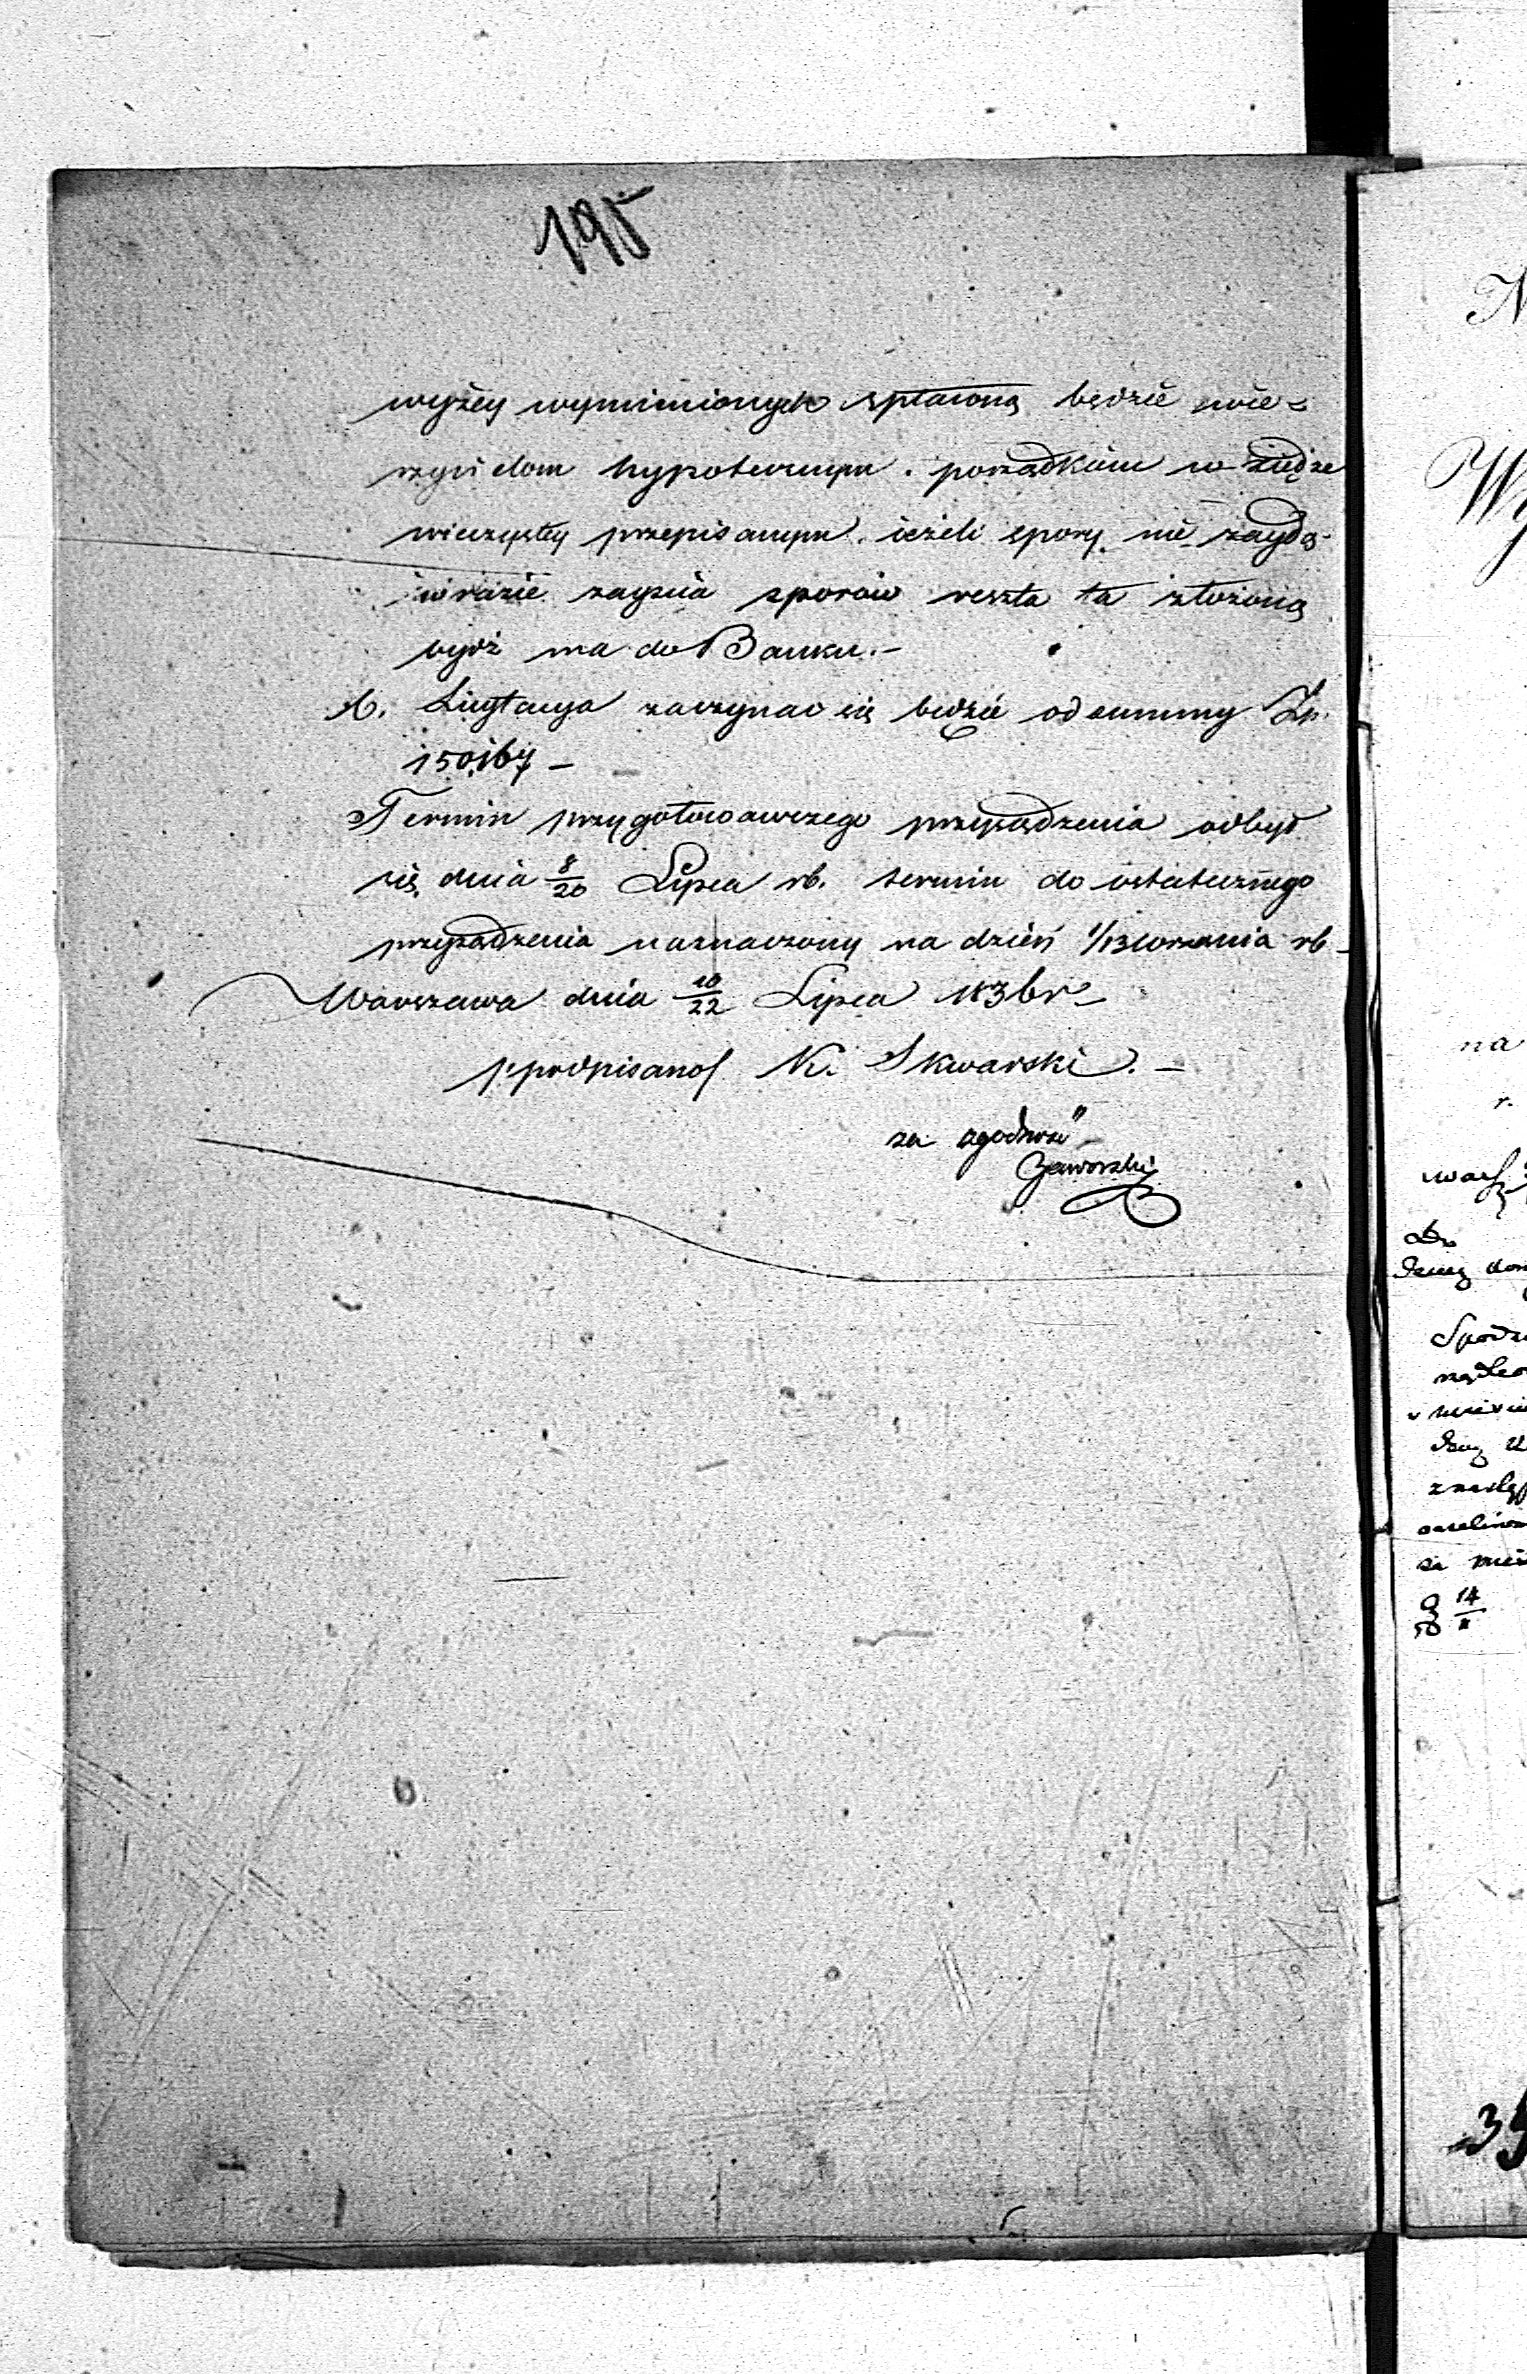 195
wyżey wymienionych spłaconą będzie wie-
rzycielom hypotecznym. porządkiem w xiędze
wieczystey przepisanym. ieżeli spory nie zaydą-
w razie zayścia sporów reszta ta złożoną
bydź ma do Banku.-
6. Licytacya zaczynać się będzie od summy Zp.
150,167 -
Termin przygotowawczego przysądzenia odbył
się dnia 8/20 Lipca rb. termin do ostatecznego
przysądzenia naznaczony na dzień 1/13 Września rb-
Warszawa dnia 10/22 Lipca 1836 r-
/:podpisano/ K. Skwarski. -
za zgodność-
Jaworski
N
Wy
na
r.
Do
14